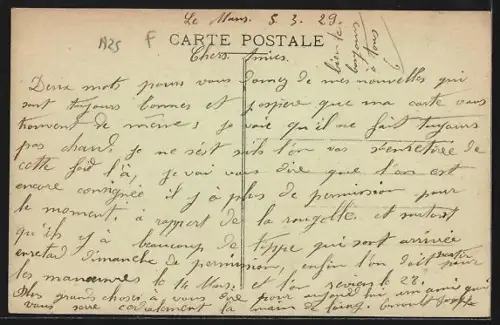 1925 F
Le Mans. 8. 3. 29.
CARTE POSTALE
bien le
bonjour
à tous
Chers Amies.
Deux mots pours vous donnez de mes nouvelles qui
sont toujours bonnes et j'espère que ma carte vous
trouvent de même; je voie qu'il ne fait toujours
pas chaud. je ne sest sils l'on vas s'entretiré de
cette foid l'à, je vai vous dire que l'on est
encore consignée il y à plus de permission pour
le moment; à rapport de la rougelle et surtout
qu'ils y à beaucoup de type qui sont arrivée
en retard dimanche de permission, enfin l'on doit partir pour
les manœuvres le 14 Mars. et l'on reviens le 28.
Plus grands choses à vous dire pour aujourd'hui un ami qui
vous serre cordialement la main de loing.